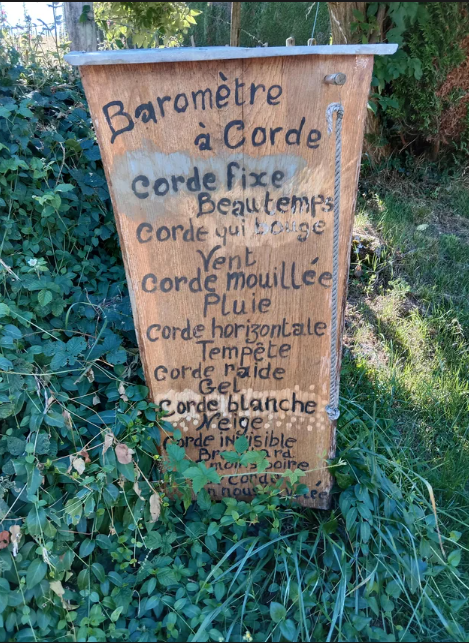 Baromètre
à Corde
Corde fixe
Beau temps
Corde qui bouge
Vent
Corde mouillée
Pluie
Corde horizontale
Tempête
Corde raide
Gel
Corde blanche
Neige
Corde invisible
Corde